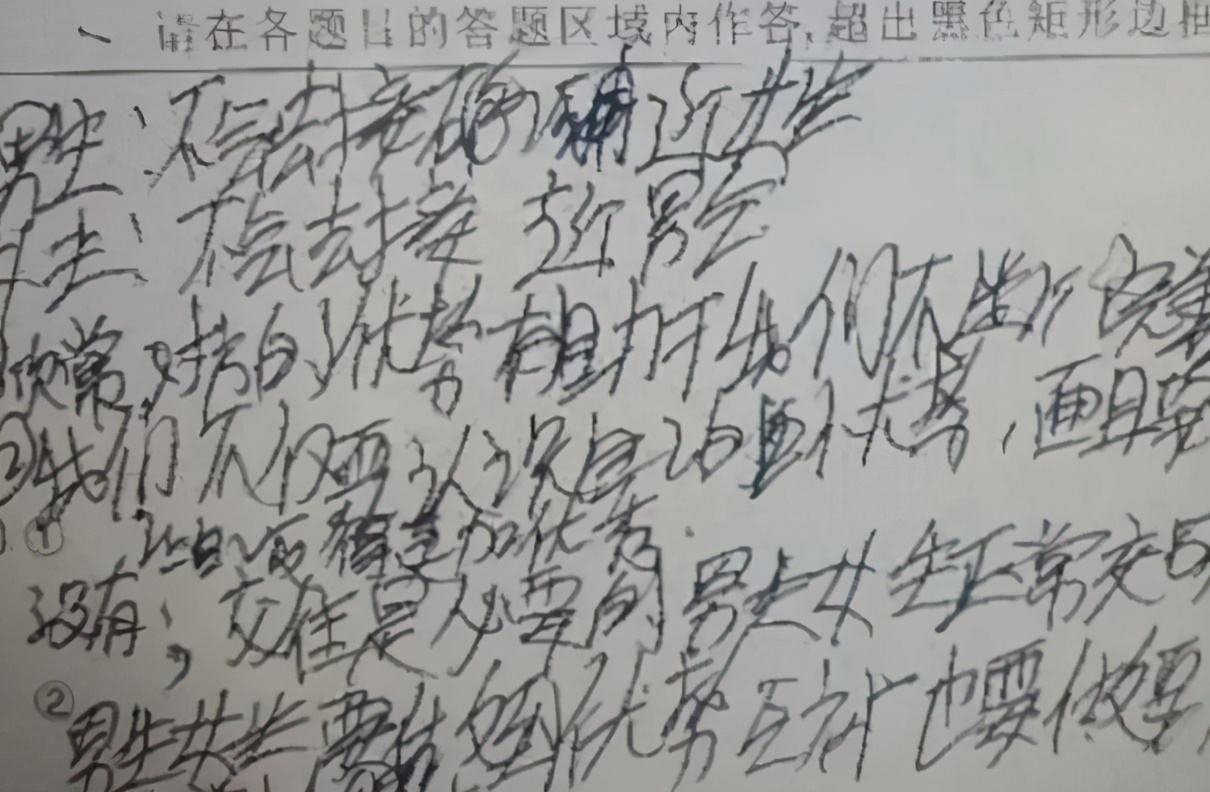 请在各题目的答题区域内作答,超出黑色矩形边框
男生:不会去接 近女生
女生:不会去接 近男生
欣常对方的优势有助于我们不断完美
②我们不仅要认识自己的优势,而且
让自己 更加优秀.
①
没有;交往是必要的 男生女生正常交
② 男生女生要 优势互补 也要做